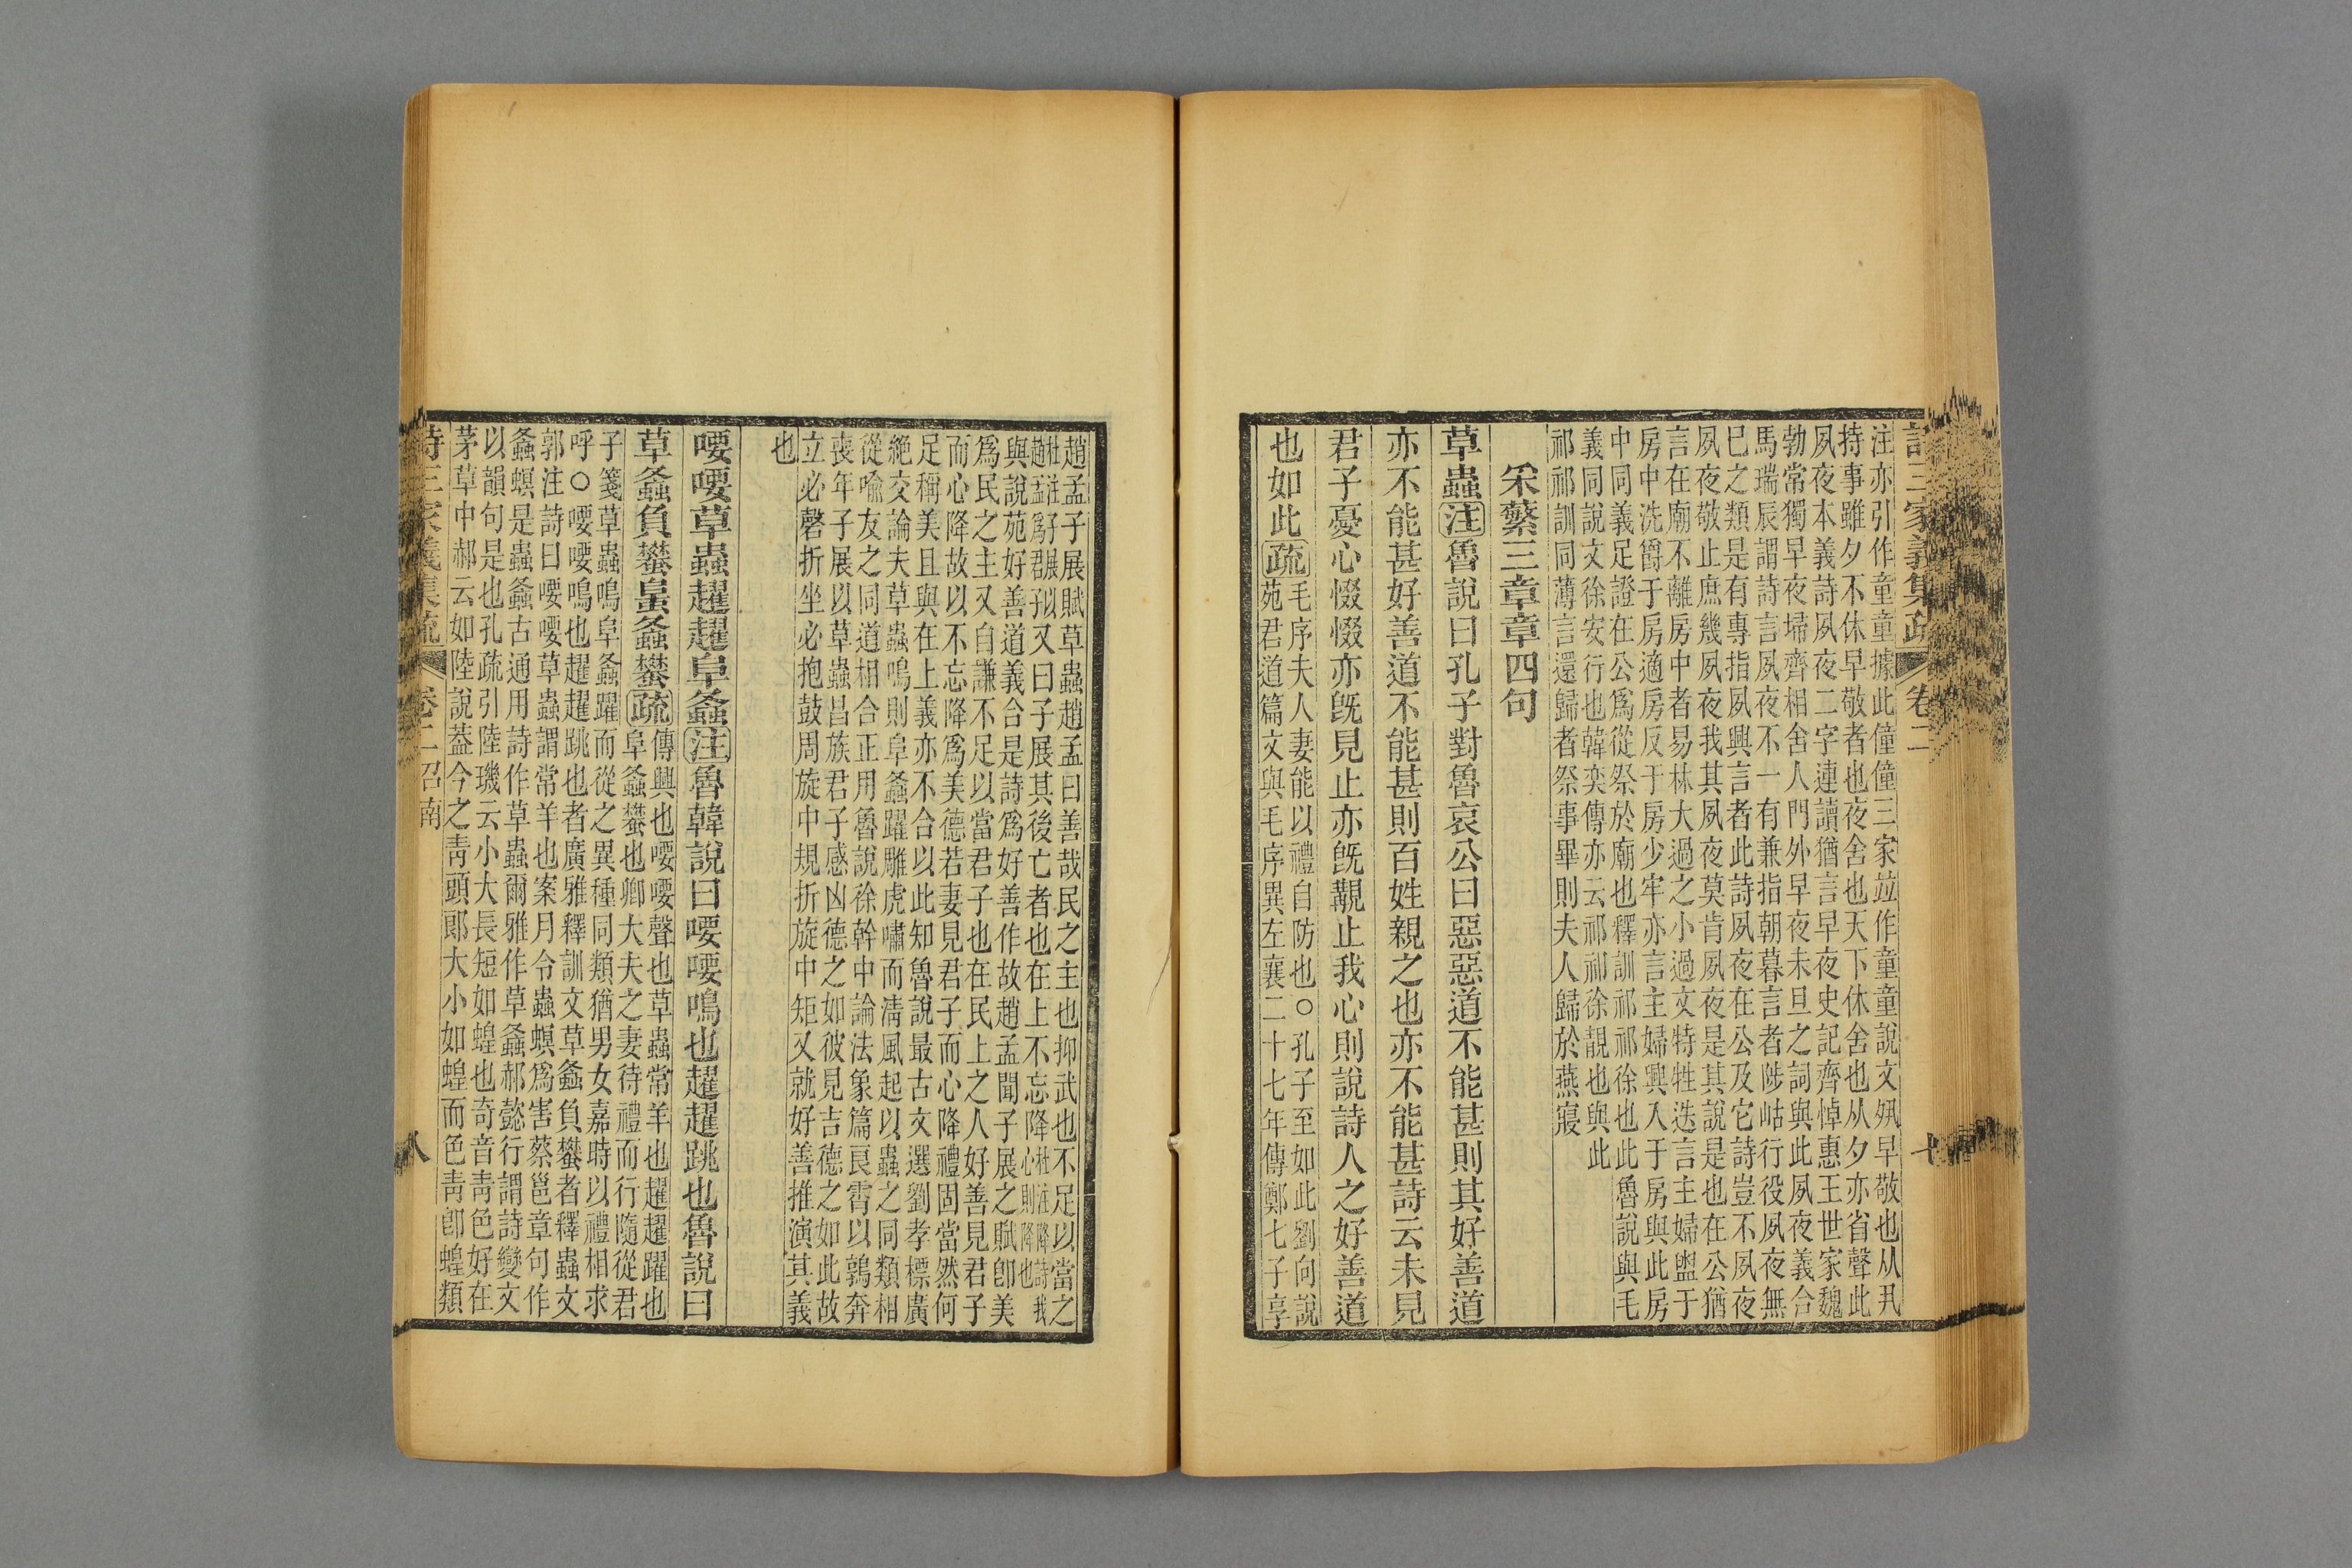 詩三家義集疏 卷二
注亦引作童童據此僮僮三家竝作童童說文夙早敬也从丮
持事雖夕不休早敬者也夜舍也天下休舍也从夕亦省聲此
夙夜本義詩夙夜二字連讀猶言早夜史記齊悼惠王世家魏
勃常獨早夜埽齊相舍人門外早夜未旦之詞與此夙夜義合
馬瑞辰謂詩言夙夜不一有兼指朝暮言者陟岵行役夙夜無
已之類是有專指夙興言者此詩夙夜在公及它詩豈不夙夜
夙夜敬止庶幾夙夜我其夙夜莫肯夙夜是其說是也在公猶
言在廟不離房中者易林大過之小過文特牲迭言主婦盥于
房中洗爵于房適房反于房少牢亦言主婦興入于房與此房
中同義足證在公爲從祭於廟也釋訓祁祁徐也此魯說與毛
義同說文徐安行也韓奕傳亦云祁祁徐靚也與此
祁祁訓同薄言還歸者祭事畢則夫人歸於燕寢
采蘩三章章四句
草蟲注魯說曰孔子對魯哀公曰惡惡道不能甚則其好善道
亦不能甚好善道不能甚則百姓親之也亦不能甚詩云未見
君子憂心惙惙亦旣見止亦旣覯止我心則說詩人之好善道
也如此疏毛序夫人妻能以禮自防也○孔子至如此劉向說
苑君道篇文與毛序異左襄二十七年傳鄭七子享
趙孟子展賦草蟲趙孟曰善哉民之主也抑武也不足以當之
杜注子展以趙孟爲君子又曰子展其後亡者也在上不忘降杜注降詩我心則降也
與說苑好善道義合是詩爲好善作故趙孟聞子展之賦卽美
爲民之主又自謙不足以當君子也在民上之人好善見君子
而心降故以不忘降爲美德若妻見君子而心降禮固當然何
足稱美且與在上義亦不合以此知魯說最古文選劉孝標廣
絶交論夫草蟲鳴則阜螽躍雕虎嘯而清風起以蟲之同類相
從喻友之同道相合正用魯說徐幹中論法象篇良霄以鶉奔
喪年子展以草蟲昌族君子感凶德之如彼見吉德之如此故
立必磬折坐必抱鼓周旋中規折旋中矩又就好善推演其義
也
喓喓草蟲趯趯阜螽注魯韓說曰喓喓鳴也趯趯跳也魯說曰
草螽負蠜阜螽蠜疏傳興也喓喓聲也草蟲常羊也趯趯躍也
阜螽蠜也卿大夫之妻待禮而行隨從君
子箋草蟲鳴阜螽躍而從之異種同類猶男女嘉時以禮相求
呼○喓喓鳴也趯趯跳也者廣雅釋訓文草螽負蠜者釋蟲文
郭注詩曰喓喓草蟲謂常羊也案月令蟲螟爲害蔡邕章句作
螽螟是蟲螽古通用詩作草蟲爾雅作草螽郝懿行謂詩變文
以韻句是也孔疏引陸璣云小大長短如蝗也奇音青色好在
茅草中郝云如陸說葢今之靑頭郞大小如蝗而色靑卽蝗類
詩三家義集疏 卷二召南 八